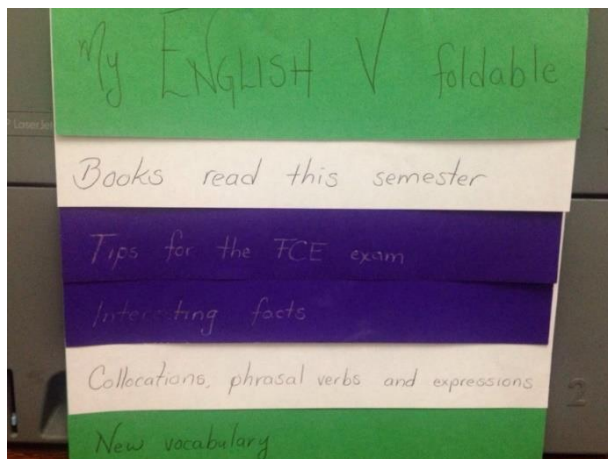 My ENGLISH V foldable
LaserJet
Books read this semester
Tips for the FCE exam
Interesting facts
Collocations, phrasal verbs and expressions
2
New vocabulary